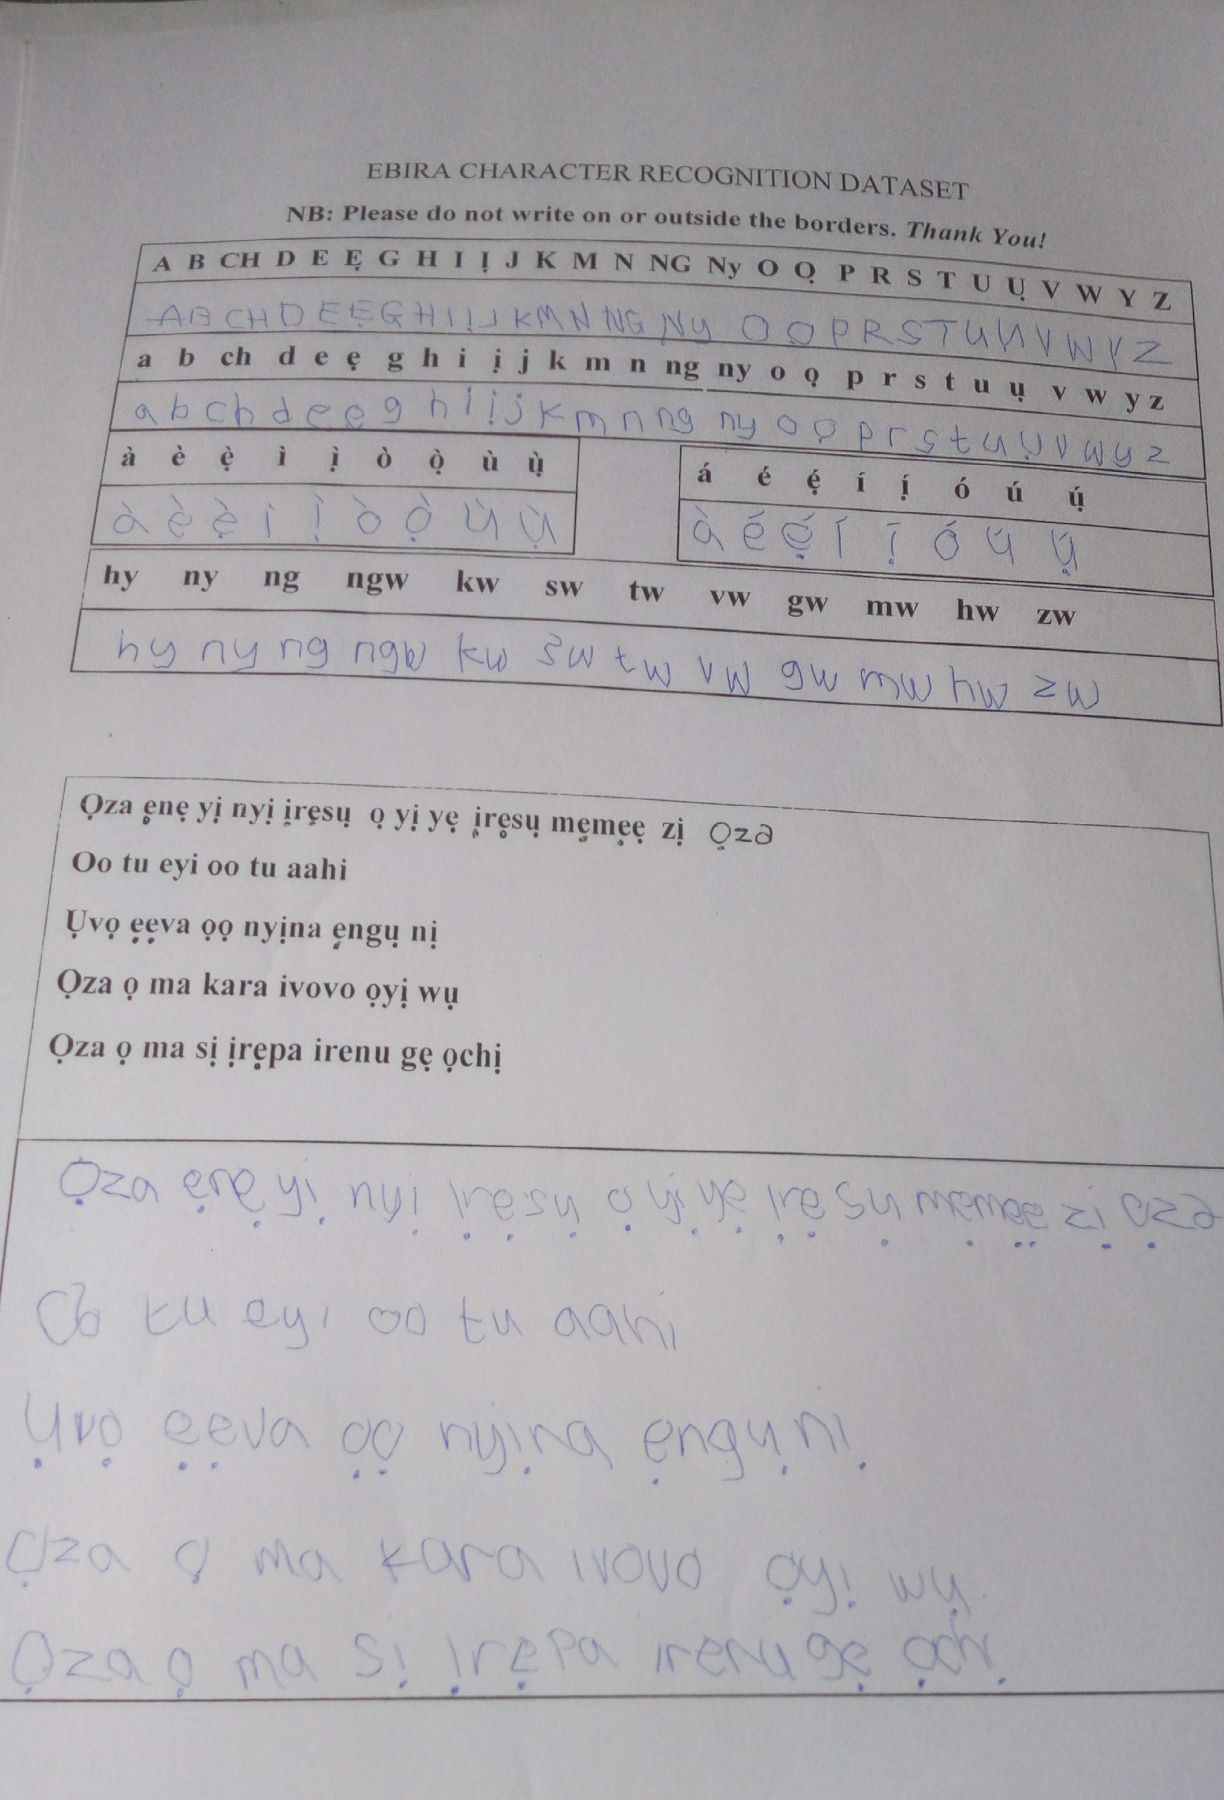 EBIRA CHARACTER RECOGNITION DATASET
NB: Please do not write on or outside the borders. Thank You!
A B CH D E Ẹ G H I Ị J K M N NG Ny O Ọ P R S T U Ụ V W Y Z
A B CH D E Ẹ G H I Ị J K M N NG Ny O Ọ P R S T U Ụ V W Y Z
a b ch d e ẹ g h i ị j k m n ng ny o ọ p r s t u ụ v w y z
a b ch d e ẹ g h i ị j k m n ng ny o ọ p r s t u ụ v w y z
à è ẹ̀ ì ị̀ ò ọ̀ ù ụ̀
à è ẹ̀ ì ị̀ ò ọ̀ ù ụ̀
á é ẹ́ í ị́ ó ú ụ́
à é ẹ́ í ị́ ó ú ụ́
hy ny ng ngw kw sw tw vw gw mw hw zw
hy ny ng ngw kw sw tw vw gw mw hw zw
Ọza ẹnẹ yị nyị ịrẹsụ ọ yị yẹ ịrẹsụ mẹmẹẹ zị Ọza
Oo tu eyi oo tu aahi
Ụvọ ẹẹva ọọ nyịna ẹngụ nị
Ọza ọ ma kara ivovo ọyị wụ
Ọza ọ ma sị ịrẹpa irenu gẹ ọchị
Ọza ẹnẹ yị nyị ịrẹsụ ọ yị yẹ ịrẹsụ mẹmẹẹ zị ọza
Oo tu eyi oo tu aahi
Ụvọ ẹẹva ọọ nyịna ẹngụ nị
Ọza ọ ma kara ivovo ọyị wụ
Ọza ọ ma sị ịrẹpa irenu gẹ ọchị